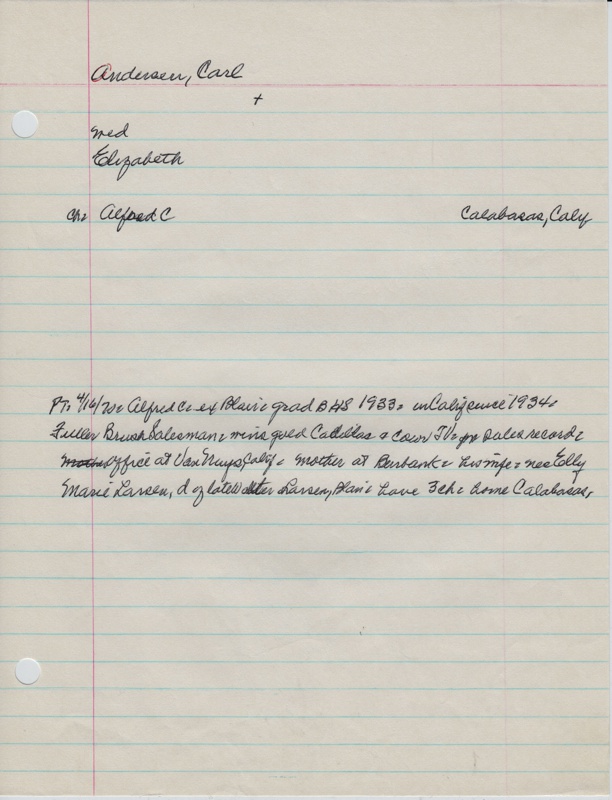 Andersen, Carl
+
med
Elizabeth
ch: Alfred C Calabasas, Calif
PT: 4/16/70: Alfred C: ex Blair: grad BHS 1933: in Calif since 1934:
Fuller Brush Salesman: wins gold Cadillac & color TV: for sales record:
office at Van Nuys, Calif: mother at Burbank: his wife: nee
Marie Larsen, d of late Walter Larsen, Blair: have 3 ch: home Calabasas,